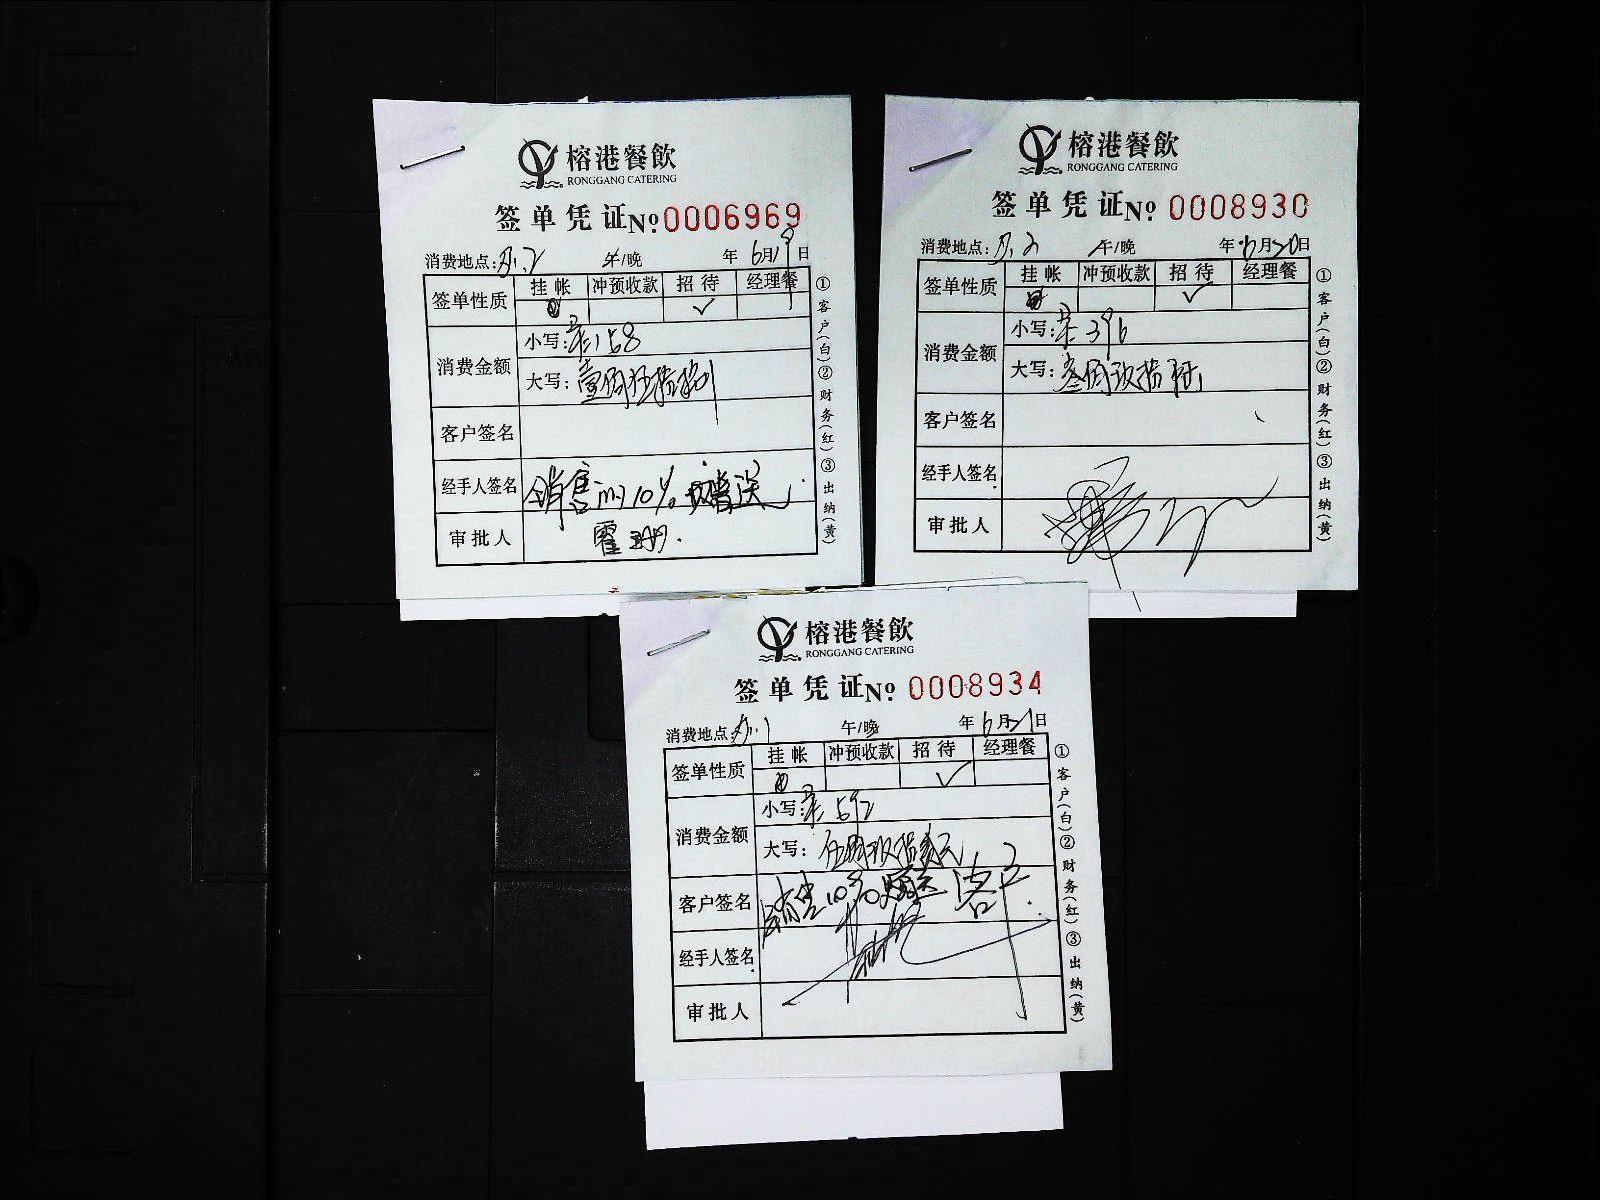 榕港餐飲
RONGGANG CATERING
签单凭证№0006969
消费地点: 午/晚 年6月19日
签单性质 挂帐 冲预收款 招待 经理餐
✓
消费金额 小写:菜158
大写:壹佰伍拾捌
客户签名
经手人签名 销售 10% 赠送
审批人 霍
①客户(白)②财务(红)③出纳(黄)
榕港餐飲
RONGGANG CATERING
签单凭证№0008930
消费地点: 午/晚 年6月20日
签单性质 挂帐 冲预收款 招待 经理餐
✓
消费金额 小写:菜396
大写:叁佰玖拾陆
客户签名
经手人签名
审批人
①客户(白)②财务(红)③出纳(黄)
榕港餐飲
RONGGANG CATERING
签单凭证№0008934
消费地点 午/晚 年6月21日
签单性质 挂帐 冲预收款 招待 经理餐
✓
消费金额 小写:菜592
大写:伍佰玖拾贰元
客户签名 销售10%赠送客户
经手人签名
审批人
①客户(白)②财务(红)③出纳(黄)